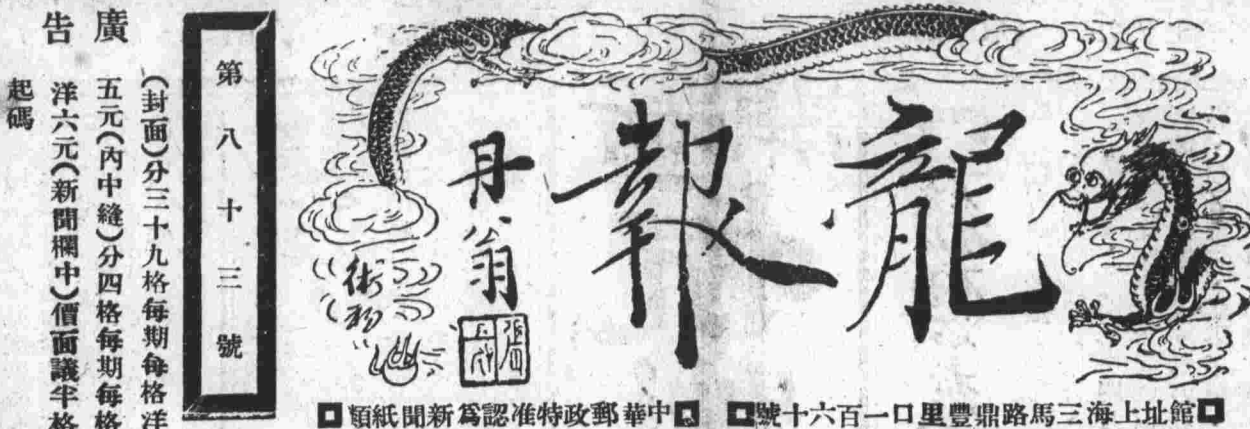 龍報
丹翁
館址上海三馬路鼎豐里口一百六十號
中華郵政特准認爲新聞紙類
第八十三號
廣告
(封面)分三十九格每期每格洋
五元(內中縫)分四格每期每格
洋六元(新聞欄中)價面議半格
起碼